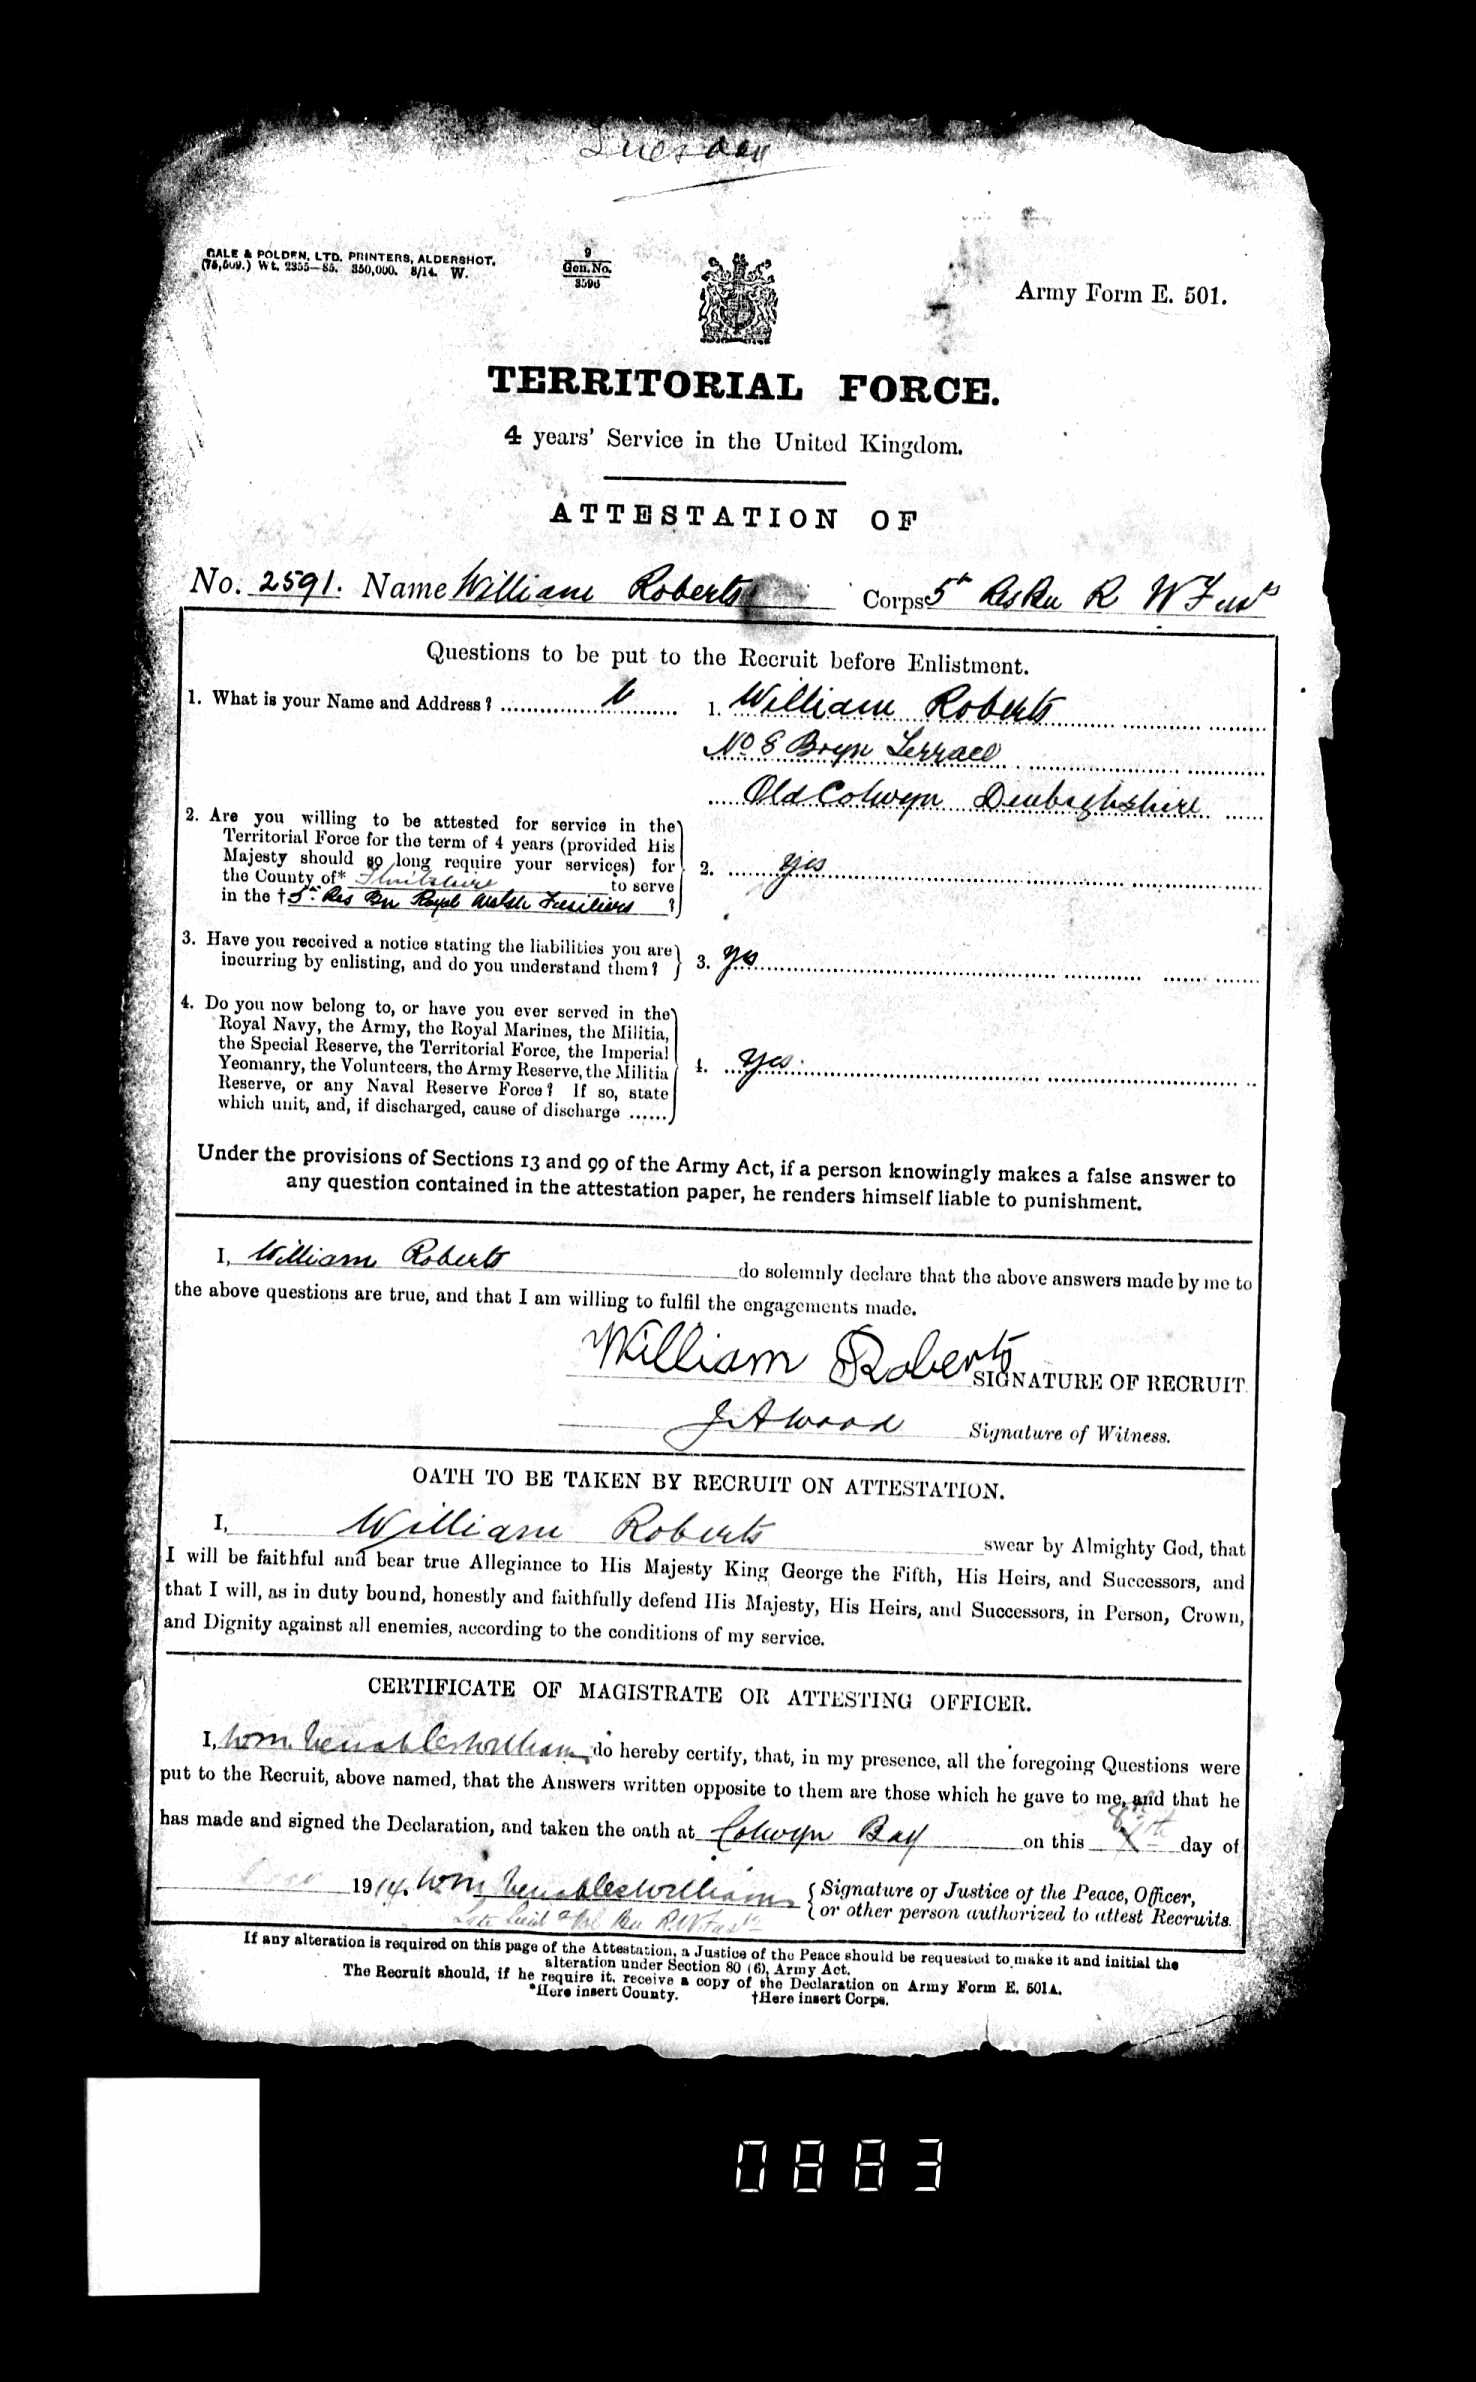 Tuesday
GALE & POLDEN, LTD. PRINTERS, ALDERSHOT.
(75,509.) Wt. 2355—85. 350,000. 8/14. W.
9
Gen. No.
3596
Army Form E. 501.
TERRITORIAL FORCE.
4 years' Service in the United Kingdom.
ATTESTATION OF
No. 2591. Name William Roberts Corps 5th Res Bn R W Fus
Questions to be put to the Recruit before Enlistment.
1. What is your Name and Address? 1. William Roberts
No 8 Bryn Terrace
Old Colwyn Denbighshire
2. Are you willing to be attested for service in the
Territorial Force for the term of 4 years (provided His
Majesty should so long require your services) for
the County of* Flintshire to serve
in the † 5th Res Bn Royal Welsh Fusiliers ?
2. yes
3. Have you received a notice stating the liabilities you are
incurring by enlisting, and do you understand them?
3. yes
4. Do you now belong to, or have you ever served in the
Royal Navy, the Army, the Royal Marines, the Militia,
the Special Reserve, the Territorial Force, the Imperial
Yeomanry, the Volunteers, the Army Reserve, the Militia
Reserve, or any Naval Reserve Force? If so, state
which unit, and, if discharged, cause of discharge ......
4. yes.
Under the provisions of Sections 13 and 99 of the Army Act, if a person knowingly makes a false answer to
any question contained in the attestation paper, he renders himself liable to punishment.
I, William Roberts do solemnly declare that the above answers made by me to
the above questions are true, and that I am willing to fulfil the engagements made.
William Roberts SIGNATURE OF RECRUIT.
J A Wood Signature of Witness.
OATH TO BE TAKEN BY RECRUIT ON ATTESTATION.
I, William Roberts swear by Almighty God, that
I will be faithful and bear true Allegiance to His Majesty King George the Fifth, His Heirs, and Successors, and
that I will, as in duty bound, honestly and faithfully defend His Majesty, His Heirs, and Successors, in Person, Crown,
and Dignity against all enemies, according to the conditions of my service.
CERTIFICATE OF MAGISTRATE OR ATTESTING OFFICER.
I, Wm. Venables Williams, do hereby certify, that, in my presence, all the foregoing Questions were
put to the Recruit, above named, that the Answers written opposite to them are those which he gave to me, and that he
has made and signed the Declaration, and taken the oath at Colwyn Bay on this day of
1914. Wm. Venables Williams
Signature of Justice of the Peace, Officer,
or other person authorized to attest Recruits.
If any alteration is required on this page of the Attestation, a Justice of the Peace should be requested to make it and initial the
alteration under Section 80 (6), Army Act.
The Recruit should, if he require it, receive a copy of the Declaration on Army Form E. 501A.
*Here insert County. †Here insert Corps.
0883